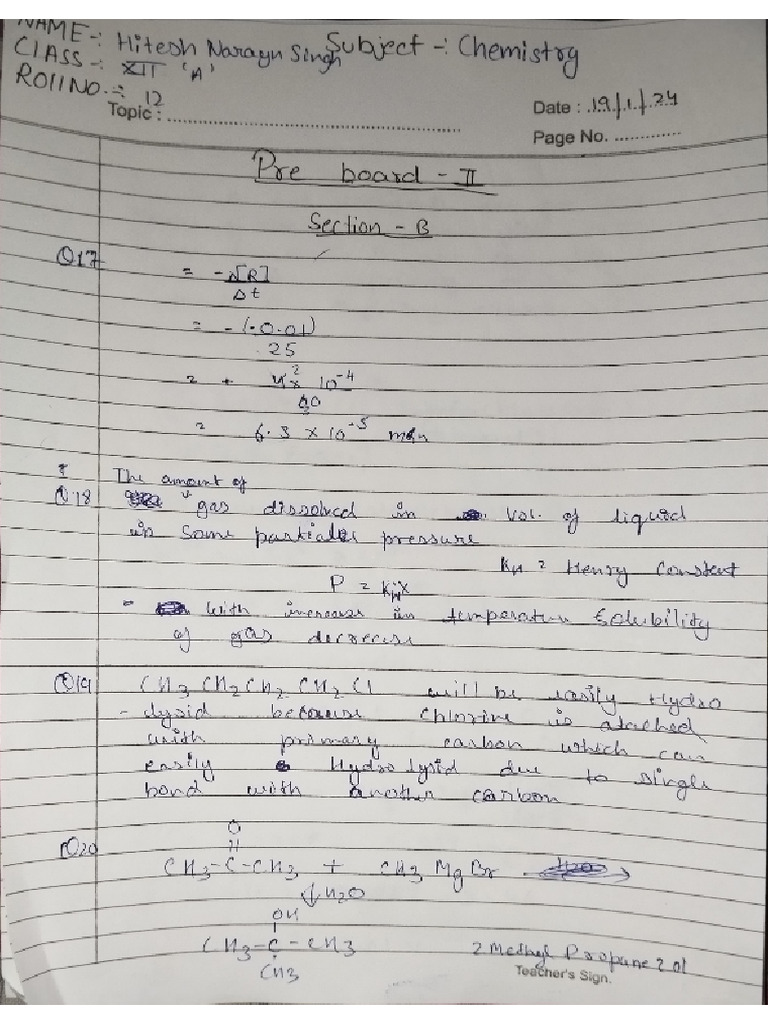 NAME-: Hitesh Narayn Singh Subject-: Chemistry
CLASS-: XII 'A'
ROll NO.-: 12
Topic : Date : 19/1/24
Page No.
Pre board - II
Section - B
Q17 = -Δ[R]
Δt
= -(-0.01)
25
= + 4 x 10-4
60
= 6.3 x 10-5
The amount of
Q18 gas dissolved in vol. of liquid
in some partial pressure
KH = Henry Constent
P = KH.X
= with increase in temperature solubility
of gas decrecise
Q19 CH3 CH2 CH2 CH2 Cl will be easily Hydro
-lysid because chlorine is atached
with primary carbon which can
easily Hydrolysid due to single
bond with another carbon
Q20 O
CH3-C-CH3 + CH3 Mg Br
↓H2O
OH
CH3-C-CH3
CH3
2 Methyl Propane 2 ol
Teacher's Sign.